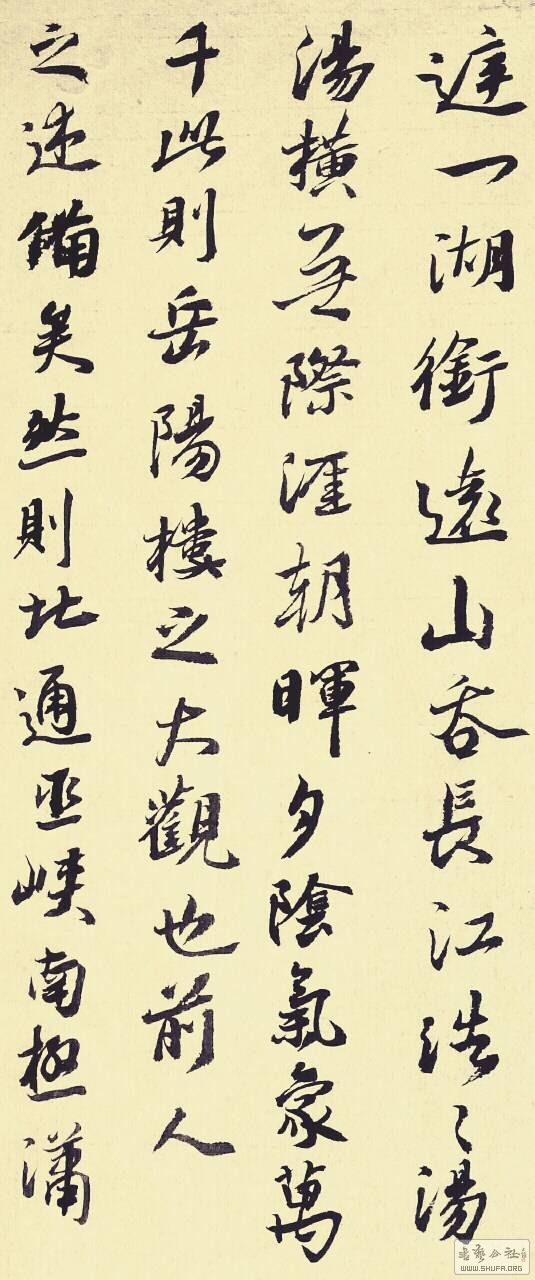 庭一湖銜遠山吞長江浩〻湯
湯橫無際涯朝暉夕陰氣象萬
千此則岳陽樓之大觀也前人
之述備矣然則北通巫峽南極瀟
WWW.SHUFA.ORG